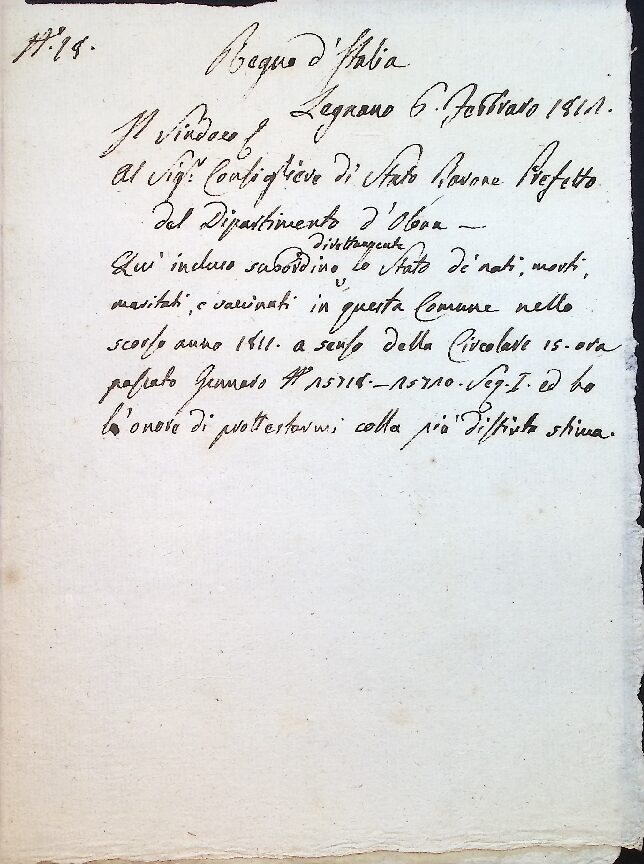 N.° 18.
Regno d'Italia
Legnano 6. Febbraro 1812.
Il Sindaco
Al Sig.r Consigliere di Stato Barone Prefetto
del Dipartimento d'Olona —
direttamente
Qui incluso subordino lo Stato de' nati, morti,
maritati, e vaccinati in questa Comune nello
scorso anno 1811. a senso della Circolare 15. ora
passato Gennaro N.° 15718.—15710. Seg. I. ed ho
l'onore di prottestarmi colla più distinta stima.